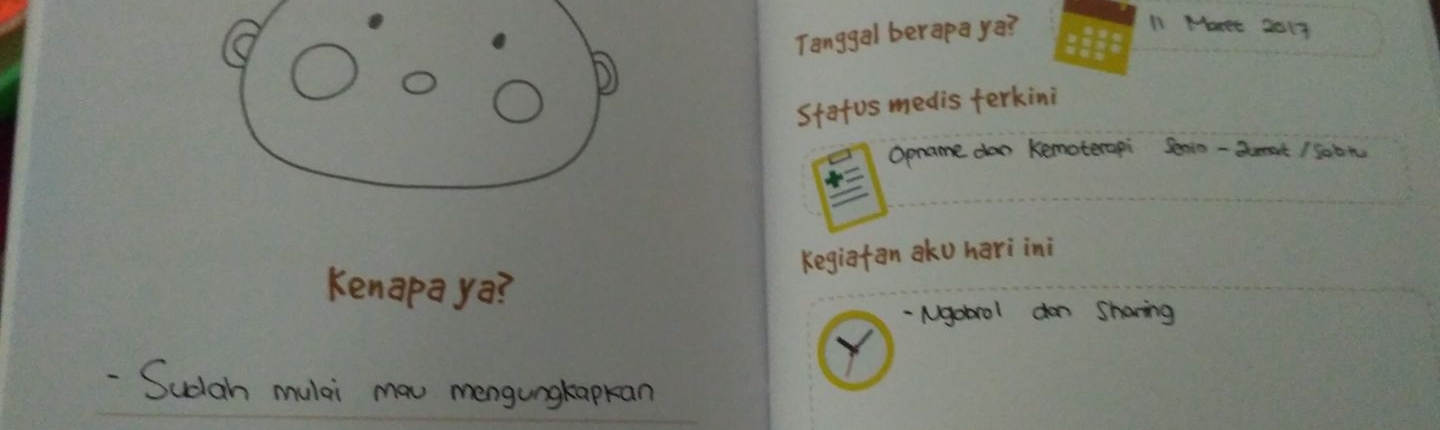 Kenapa ya?
- Sudah mulai mau mengungkapkan
Tanggal berapa ya?
11 Maret 2017
Status medis terkini
Opname dan Kemoterapi Senin - Jumat / Sabtu
Kegiatan aku hari ini
- Ngobrol dan Sharing